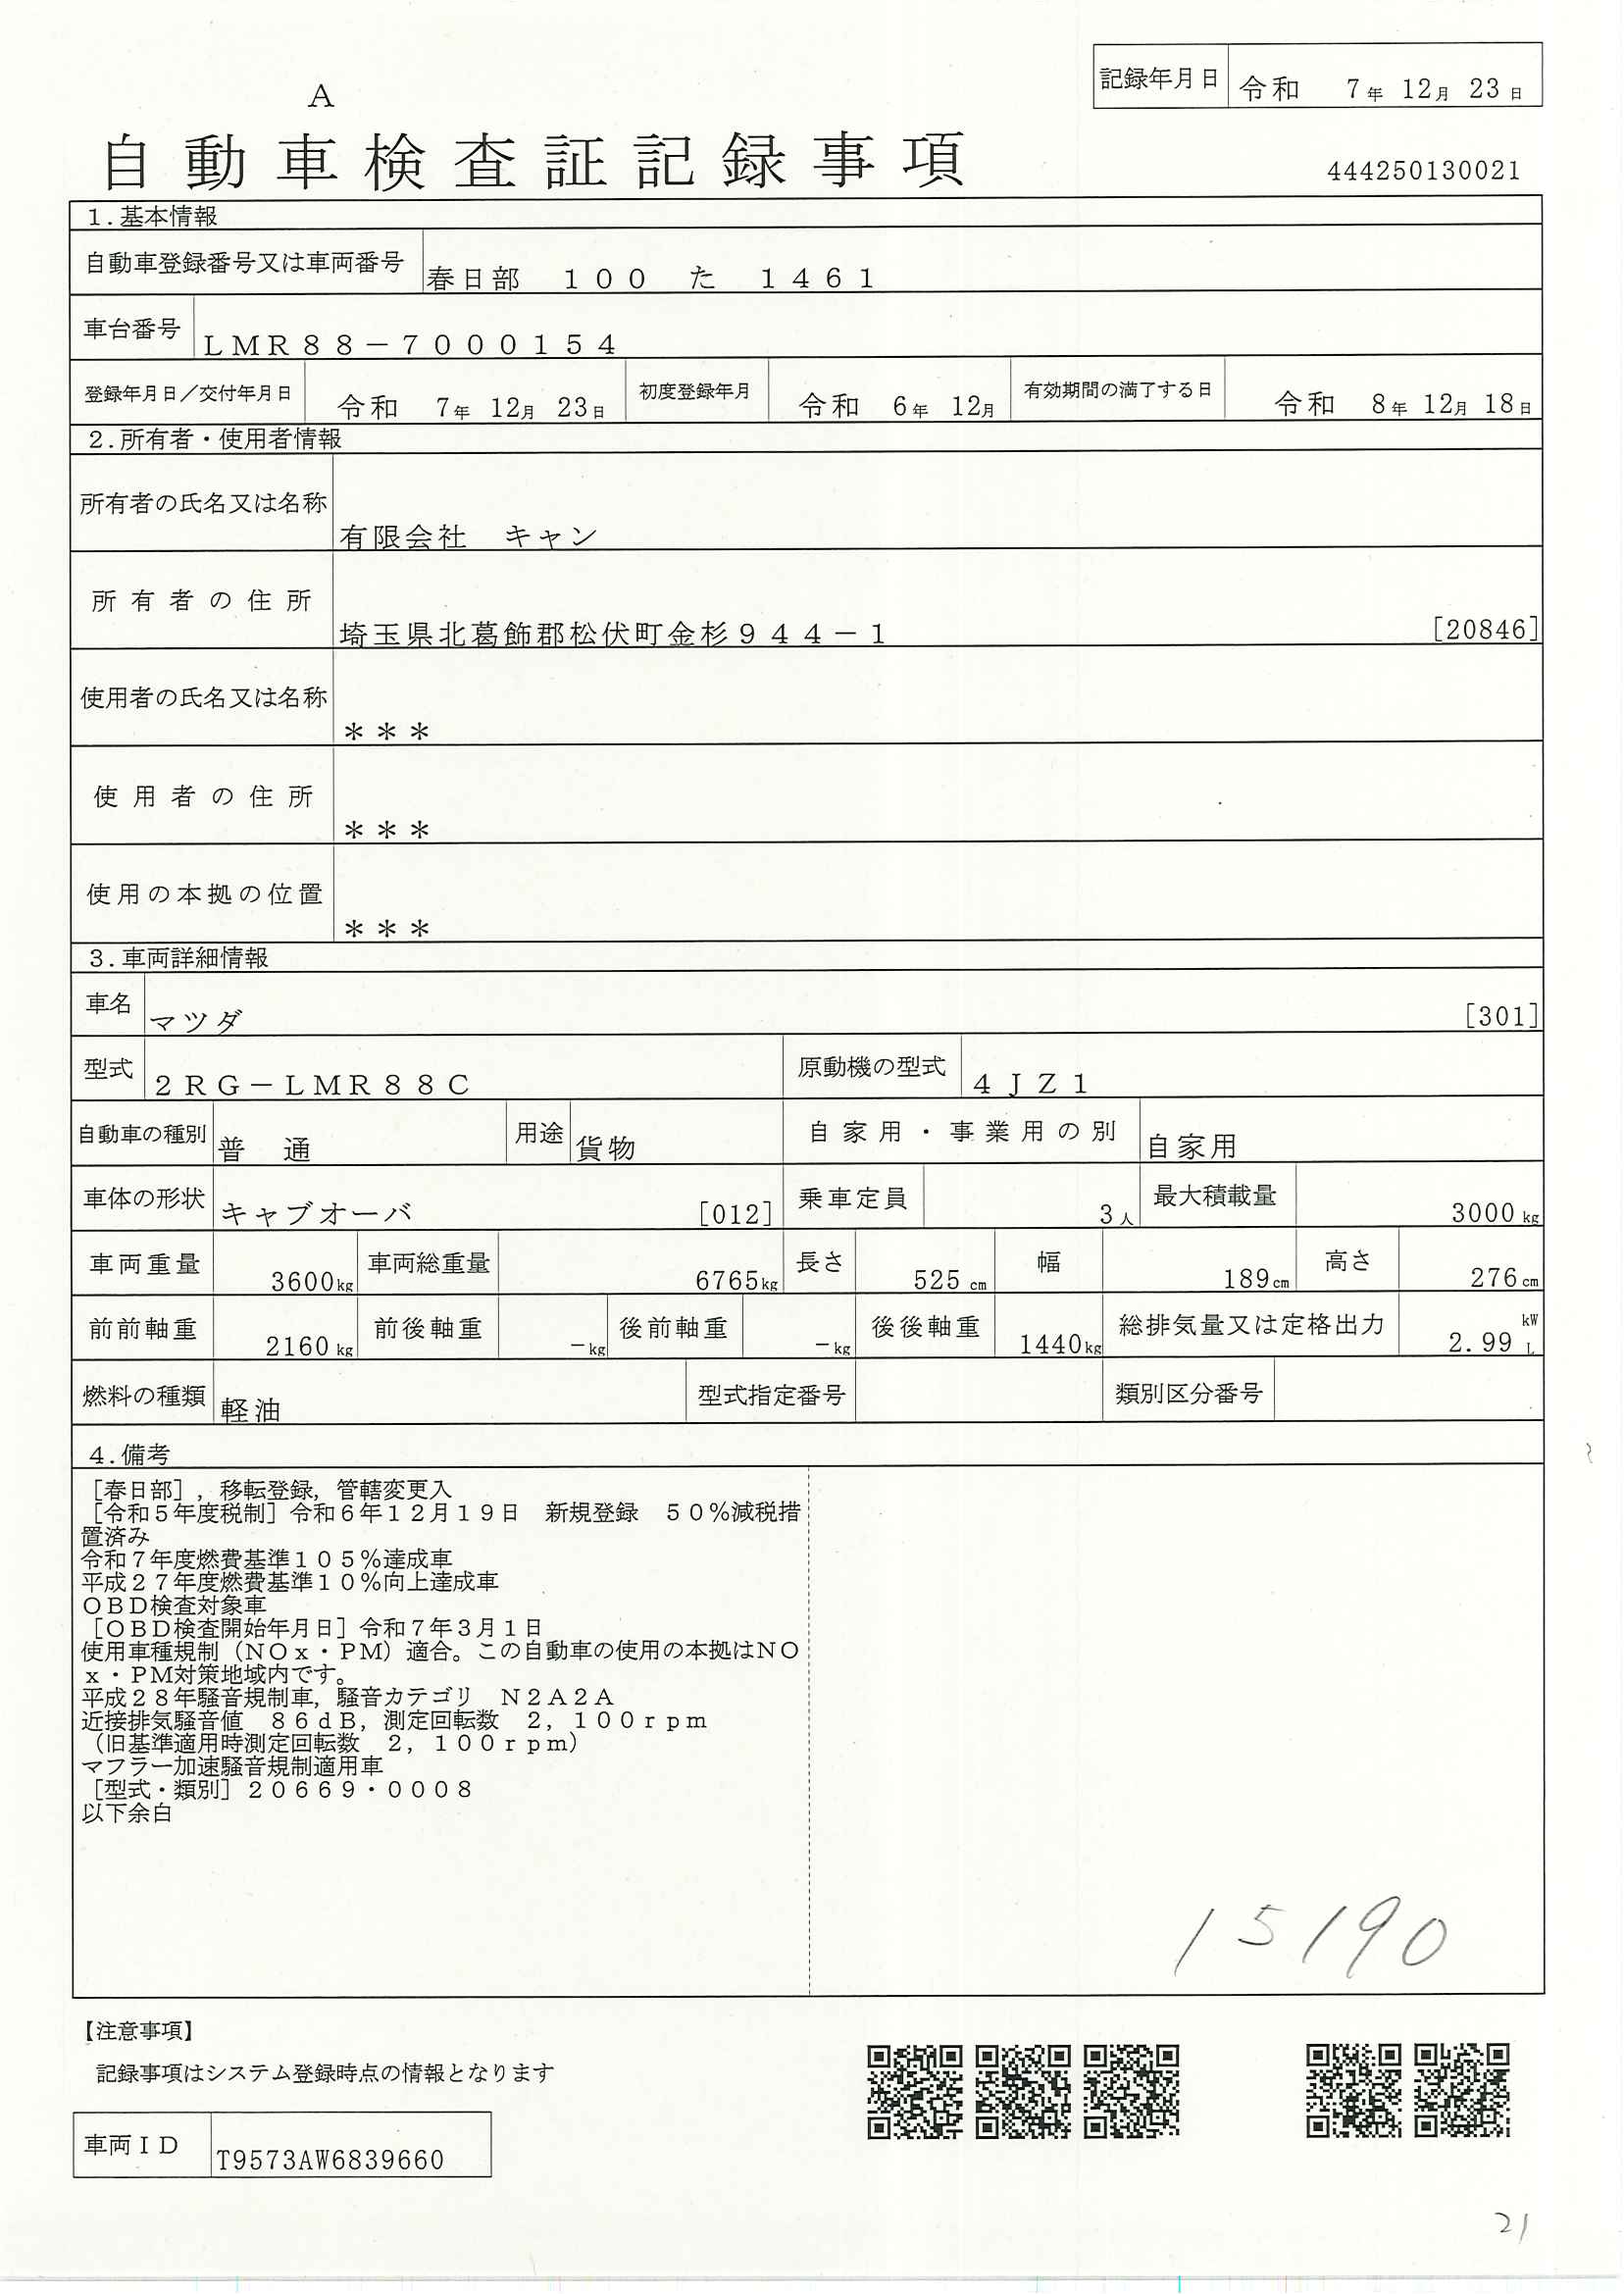 記録年月日 令和 7年 12月 23日
A
自動車検査証記録事項
444250130021
1.基本情報
自動車登録番号又は車両番号 春日部 100 た 1461
車台番号 LMR88-7000154
登録年月日/交付年月日 令和 7年 12月 23日 初度登録年月 令和 6年 12月 有効期間の満了する日 令和 8年 12月 18日
2.所有者・使用者情報
所有者の氏名又は名称 有限会社 キャン
所有者の住所 埼玉県北葛飾郡松伏町金杉944-1 [20846]
使用者の氏名又は名称 ***
使用者の住所 ***
使用の本拠の位置 ***
3.車両詳細情報
車名 マツダ [301]
型式 2RG-LMR88C 原動機の型式 4JZ1
自動車の種別 普 通 用途 貨物 自家用・事業用の別 自家用
車体の形状 キャブオーバ [012] 乗車定員 3人 最大積載量 3000kg
車両重量 3600kg 車両総重量 6765kg 長さ 525cm 幅 189cm 高さ 276cm
前前軸重 2160kg 前後軸重 -kg 後前軸重 -kg 後後軸重 1440kg 総排気量又は定格出力 2.99 kW L
燃料の種類 軽油 型式指定番号 類別区分番号
4.備考
[春日部],移転登録,管轄変更入
[令和5年度税制]令和6年12月19日 新規登録 50%減税措
置済み
令和7年度燃費基準105%達成車
平成27年度燃費基準10%向上達成車
OBD検査対象車
[OBD検査開始年月日]令和7年3月1日
使用車種規制(NOx・PM)適合。この自動車の使用の本拠はNO
x・PM対策地域内です。
平成28年騒音規制車,騒音カテゴリ N2A2A
近接排気騒音値 86dB,測定回転数 2,100rpm
(旧基準適用時測定回転数 2,100rpm)
マフラー加速騒音規制適用車
[型式・類別]20669・0008
以下余白
15190
【注意事項】
記録事項はシステム登録時点の情報となります
車両ID T9573AW6839660
21